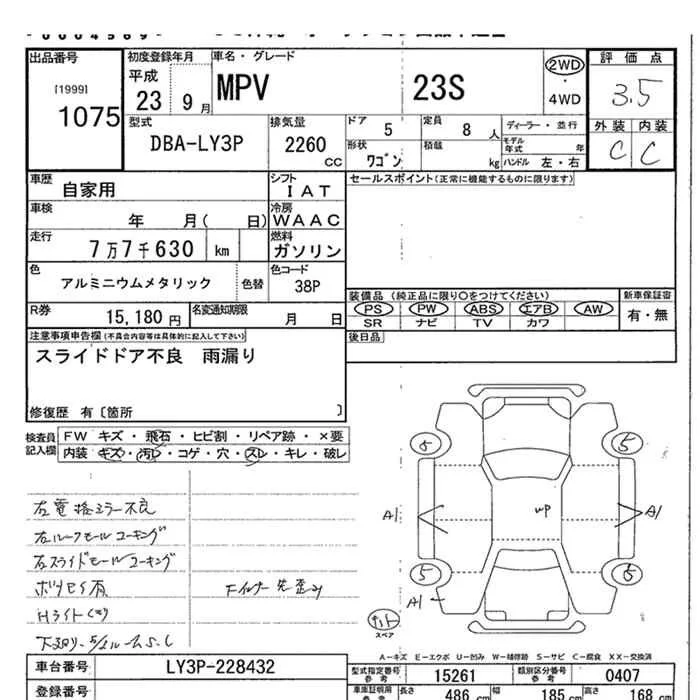 出品番号
[1999]
1075
初度登録年月
平成
23 9 月
車名・グレード
MPV 23S
2WD
・
4WD
評価点
3.5
外装 内装
C C
型式
DBA-LY3P
排気量
2260 CC
ドア 5
定員 8 人
形状 ワゴン
積載 kg
ディーラー・並行
モデル年式 年
ハンドル 左・右
車歴 自家用
シフト IAT
車検 年 月( 日)
冷房 WAAC
走行 7万7千630 km
燃料 ガソリン
色 アルミニウムメタリック 色替
色コード 38P
R券 15,180 円
名変通知期限 月 日
セールスポイント(正常に機能するものに限ります)
装備品 (純正品に限り○をつけてください)
PS PW ABS エアB AW
SR ナビ TV カワ
新車保証書
有・無
後日品
注意事項申告欄 (不具合内容等は具体的に記入して下さい)
スライドドア不良 雨漏り
修復歴 有〔箇所 〕
検査員記入欄
FW キズ・飛石・ヒビ割・リペア跡・×要
内装 キズ・汚レ・コゲ・穴・スレ・キレ・破レ
左電格ミラー不良
左ルーフモールコーキング
右スライドモールコーキング
Hライトくもり
5 5
A1 A1
WP
5
A1
スペア
A-キズ E-エクボ U-凹み W-補修跡 S-サビ C-腐食 XX-交換済
車台番号 LY3P-228432
登録番号
型式指定番号 参考 15261
類別区分番号 参考 0407
車庫証明用 参考
長さ 486 cm
幅 185 cm
高さ 168 cm